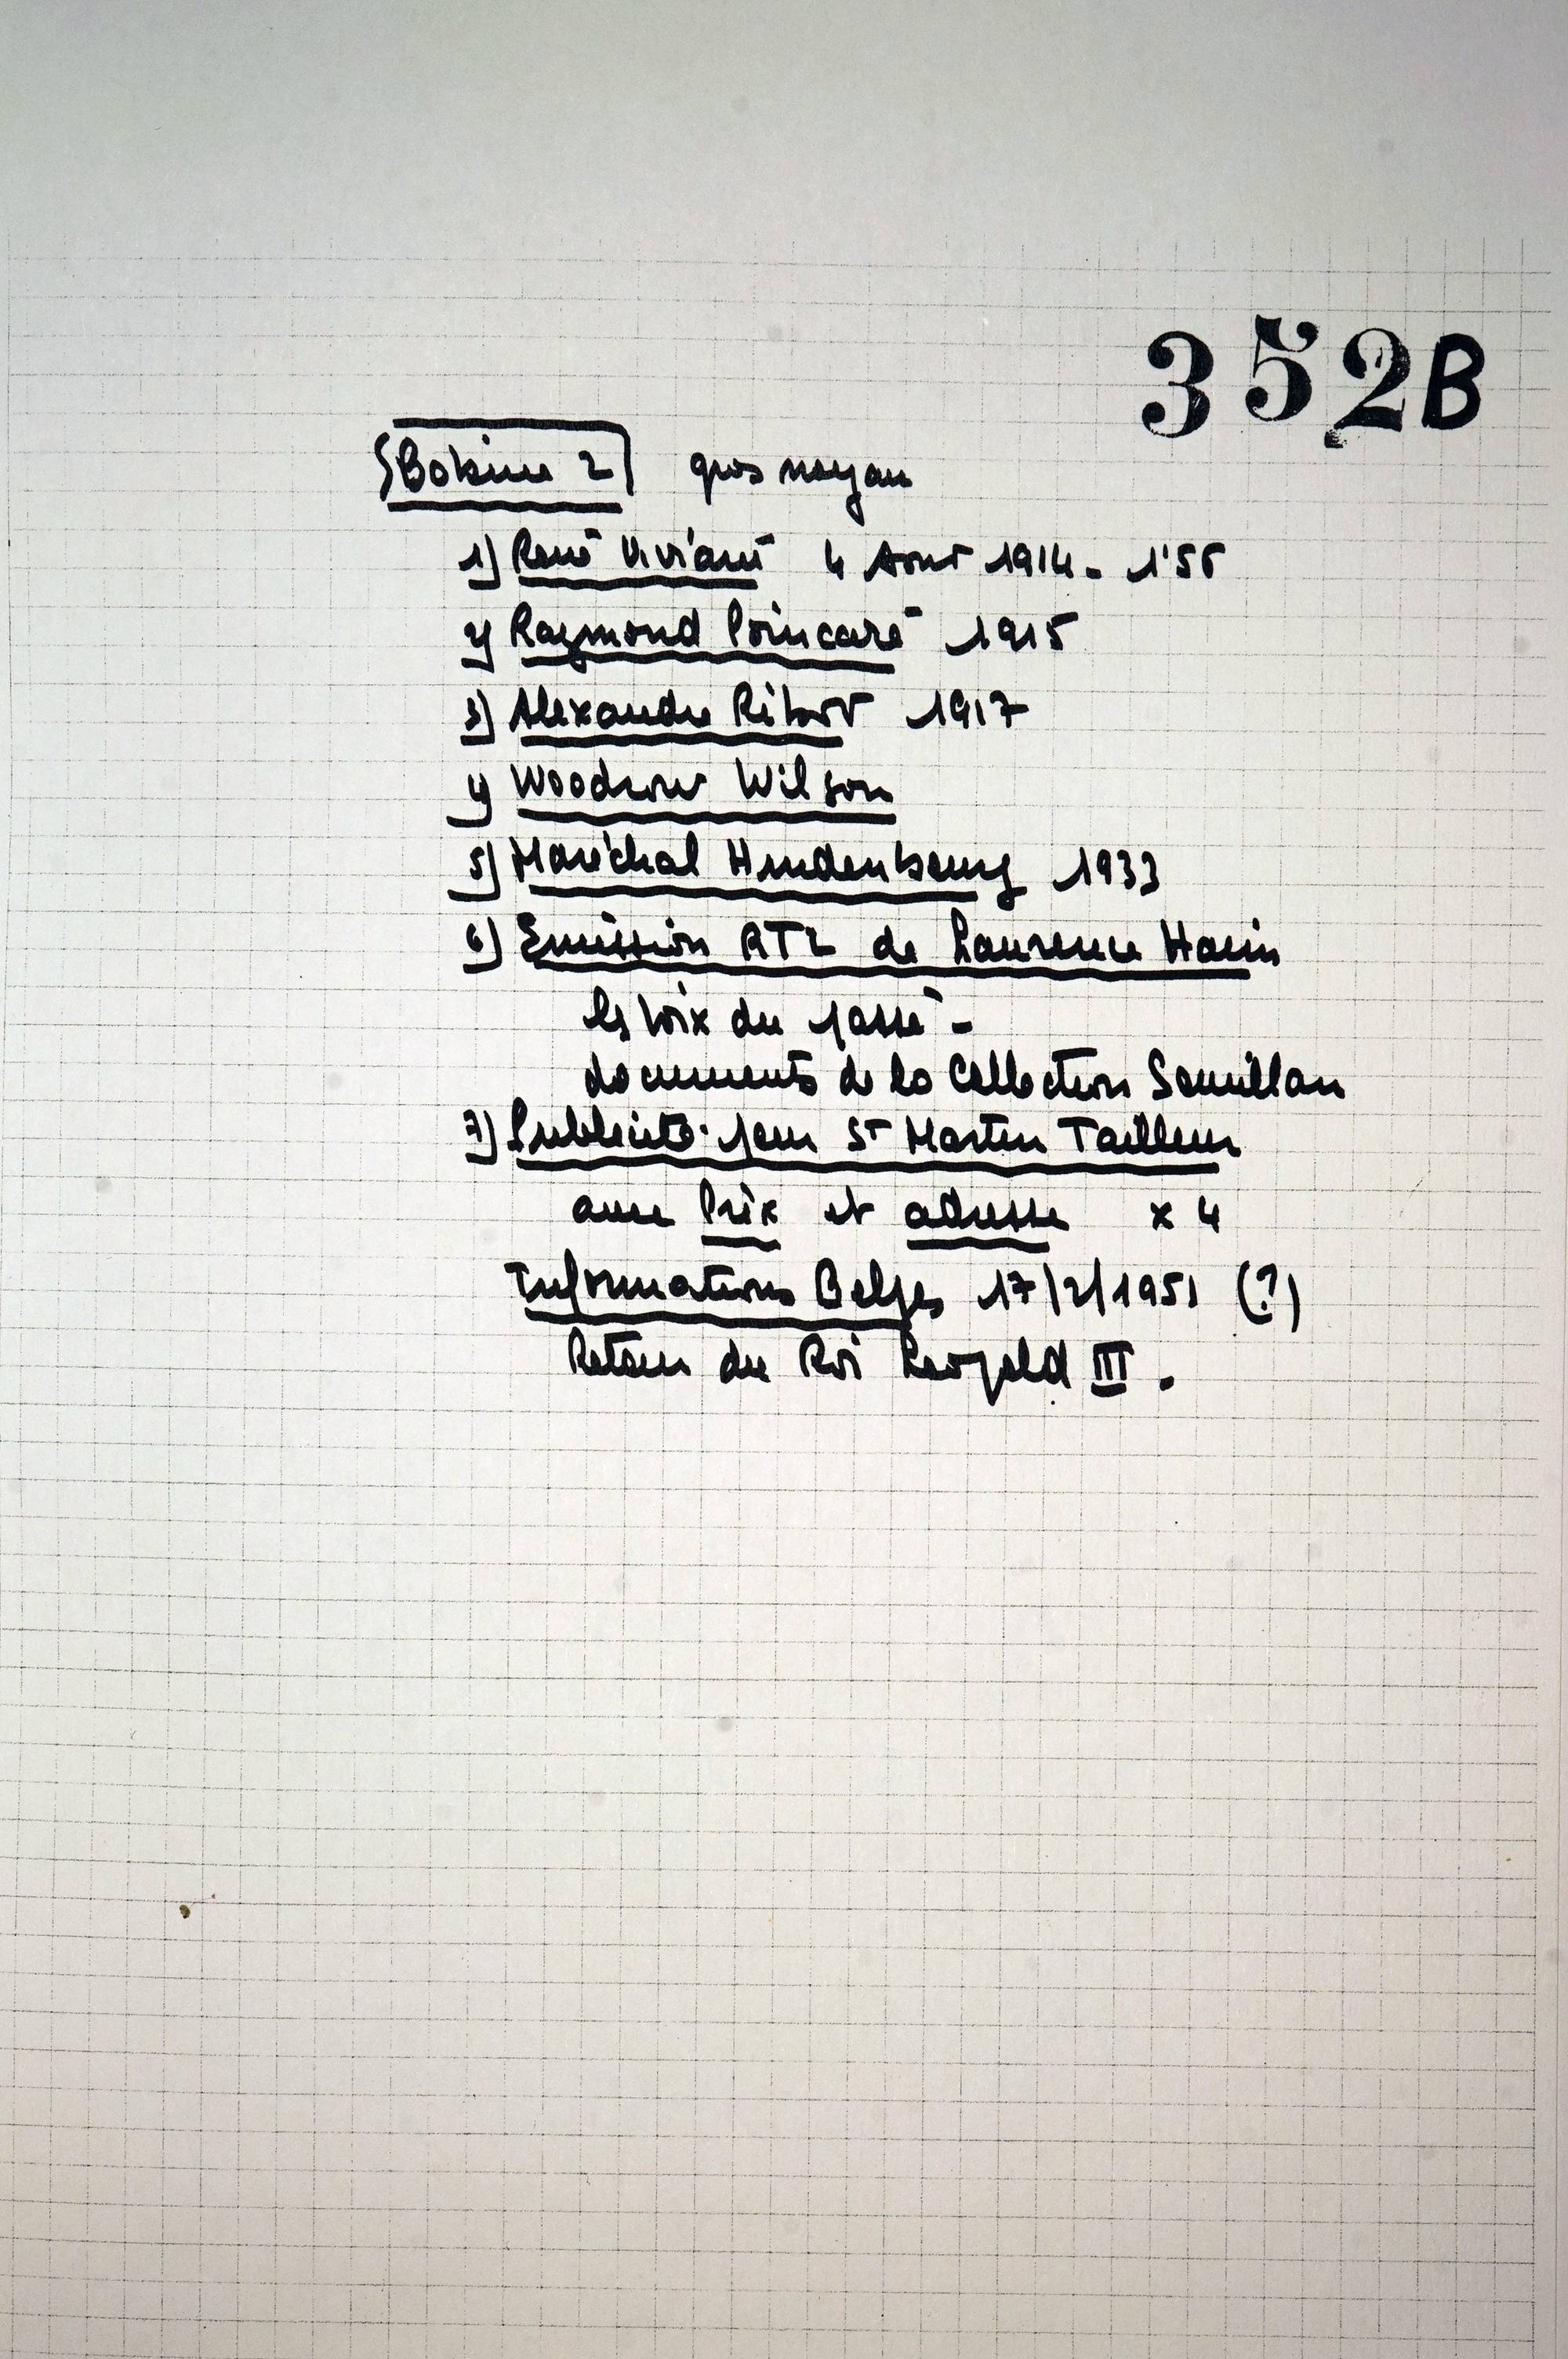 352B
Bobine 2 gros noyau
1) René Viviani 4 Aout 1914 - 1'55
2) Raymond Poincaré 1915
3) Alexandre Ribot 1917
4) Woodrow Wilson
5) Maréchal Hindenburg 1933
6) Emission RTL de Laurence Haïm
les voix du passé -
documents de la Collection Semillan
7) Publicité pour St Martin Tailleur
avec Prix et adresse x 4
Informations Belges 17/2/1951 (?)
Retour du Roi Leopold III.